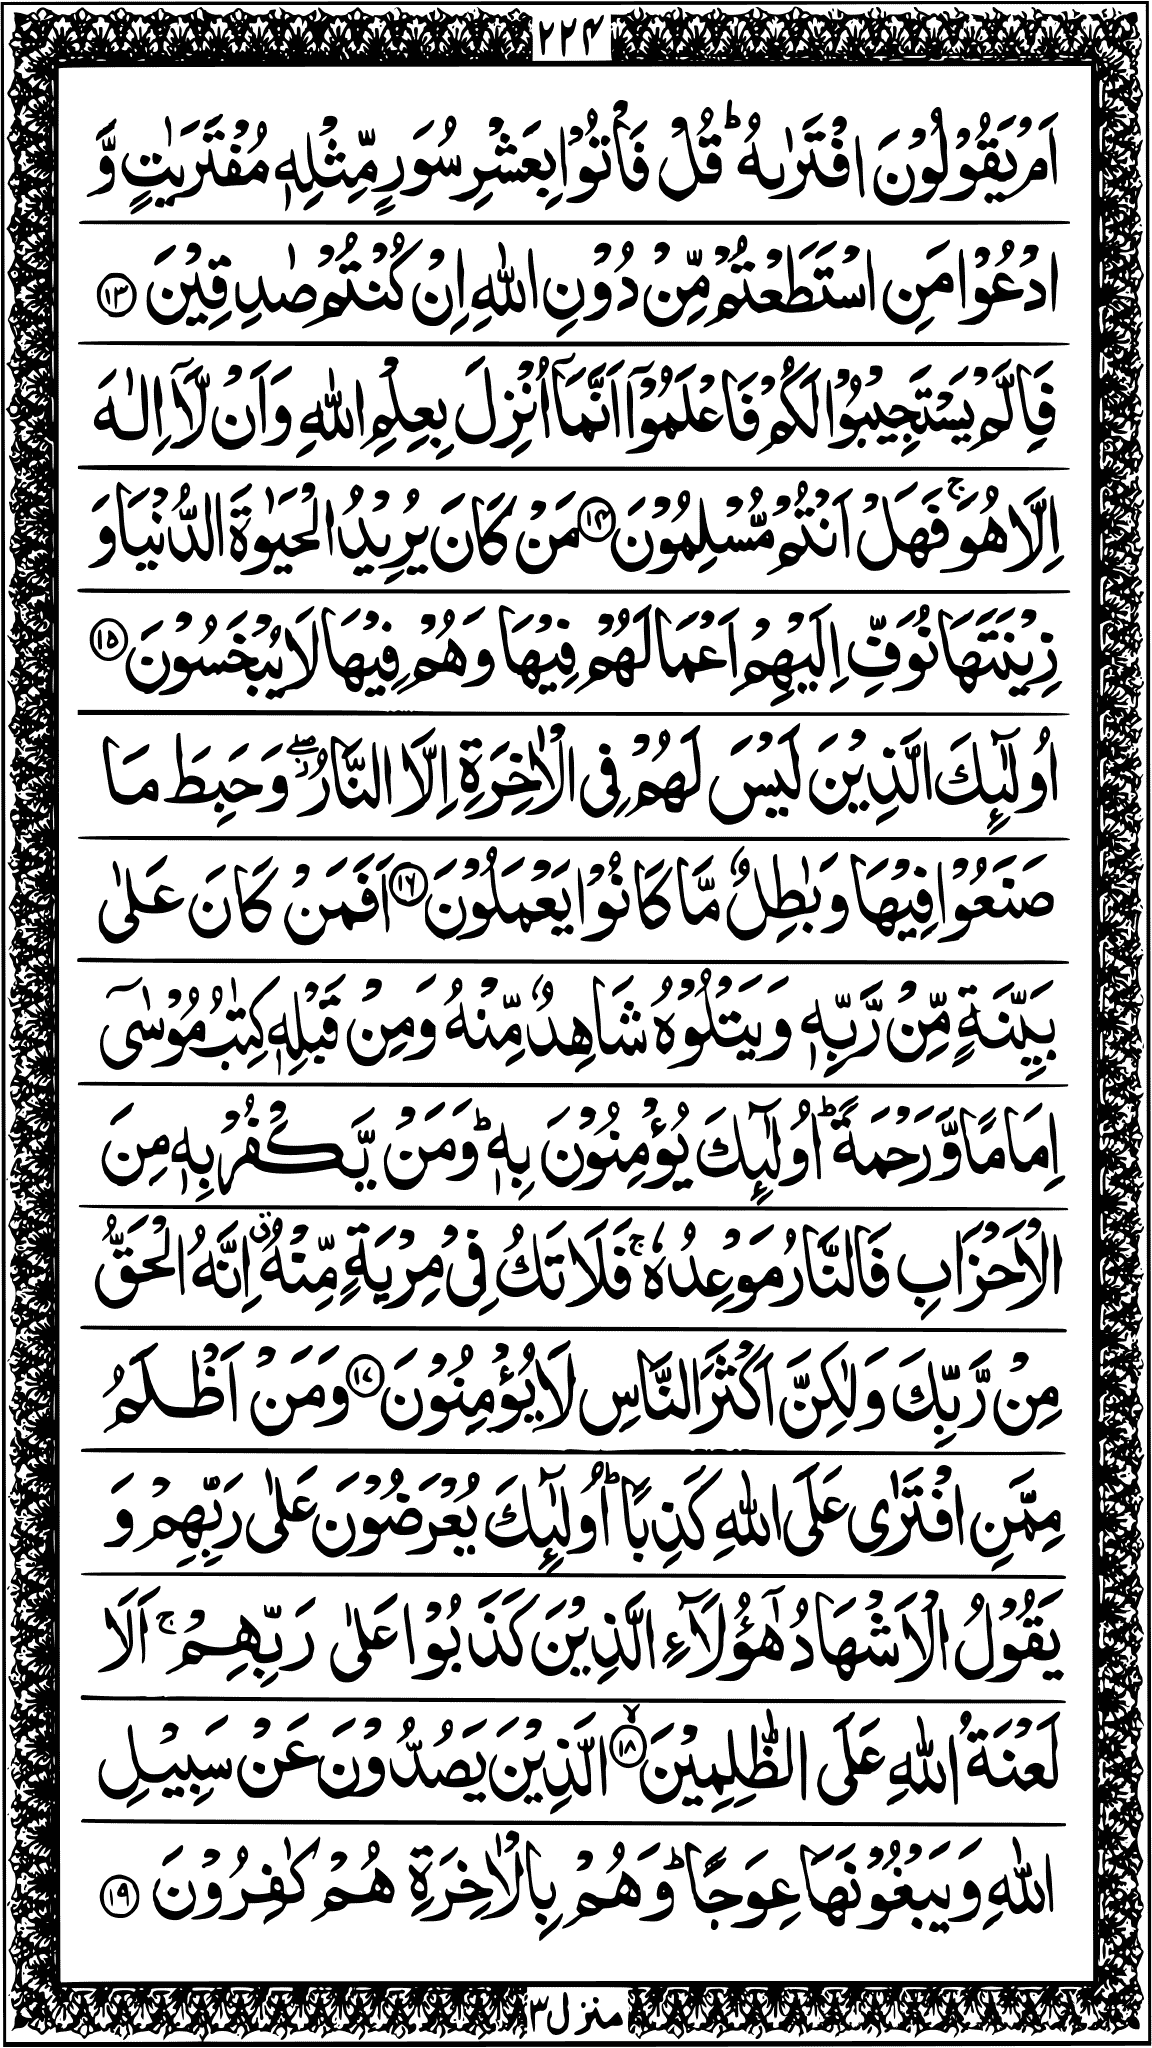 ۲۲۴
اَمۡ يَقُوۡلُوۡنَ افۡتَرٰٮهُ‌ ؕ قُلۡ فَاۡتُوۡا بِعَشۡرِ سُوَرٍ مِّثۡلِهٖ مُفۡتَرَيٰتٍ وَّ
ادۡعُوۡا مَنِ اسۡتَطَعۡتُمۡ مِّنۡ دُوۡنِ اللّٰهِ اِنۡ كُنۡتُمۡ صٰدِقِيۡنَ ﴿۱۳﴾
فَاِلَّمۡ يَسۡتَجِيۡبُوۡا لَكُمۡ فَاعۡلَمُوۡۤا اَنَّمَاۤ اُنۡزِلَ بِعِلۡمِ اللّٰهِ وَاَنۡ لَّاۤ اِلٰهَ
اِلَّا هُوَ‌ ۚ فَهَلۡ اَنۡتُمۡ مُّسۡلِمُوۡنَ ﴿۱۴﴾ مَنۡ كَانَ يُرِيۡدُ الۡحَيٰوةَ الدُّنۡيَا وَ
زِيۡنَتَهَا نُوَفِّ اِلَيۡهِمۡ اَعۡمَالَهُمۡ فِيۡهَا وَهُمۡ فِيۡهَا لَا يُبۡخَسُوۡنَ ﴿۱۵﴾
اُولٰٓٮِٕكَ الَّذِيۡنَ لَيۡسَ لَهُمۡ فِى الۡاٰخِرَةِ اِلَّا النَّارُ‌ ‌ۖ‌ۚ وَحَبِطَ مَا
صَنَعُوۡا فِيۡهَا وَبٰطِلٌ مَّا كَانُوۡا يَعۡمَلُوۡنَ ﴿۱۶﴾ اَفَمَنۡ كَانَ عَلٰى
بَيِّنَةٍ مِّنۡ رَّبِّهٖ وَيَتۡلُوۡهُ شَاهِدٌ مِّنۡهُ وَمِنۡ قَبۡلِهٖ كِتٰبُ مُوۡسٰٓى
اِمَامًا وَّرَحۡمَةً‌  ؕ اُولٰٓٮِٕكَ يُؤۡمِنُوۡنَ بِهٖ‌ ؕ وَمَنۡ يَّكۡفُرۡ بِهٖ مِنَ
الۡاَحۡزَابِ فَالنَّارُ مَوۡعِدُهٗ‌ ۚ فَلَا تَكُ فِىۡ مِرۡيَةٍ مِّنۡهُ‌ ۗ اِنَّهُ الۡحَـقُّ
مِنۡ رَّبِّكَ وَلٰـكِنَّ اَكۡثَرَ النَّاسِ لَا يُؤۡمِنُوۡنَ ﴿۱۷﴾ وَمَنۡ اَظۡلَمُ
مِمَّنِ افۡتَرٰى عَلَى اللّٰهِ كَذِبًا‌ ؕ اُولٰٓٮِٕكَ يُعۡرَضُوۡنَ عَلٰى رَبِّهِمۡ وَ
يَقُوۡلُ الۡاَشۡهَادُ هٰٓؤُلَاۤءِ الَّذِيۡنَ كَذَبُوۡا عَلٰى رَبِّهِمۡ‌ ۚ اَلَا
لَعۡنَةُ اللّٰهِ عَلَى الظّٰلِمِيۡنَ ۙ‏ ﴿۱۸﴾ الَّذِيۡنَ يَصُدُّوۡنَ عَنۡ سَبِيۡلِ
اللّٰهِ وَيَبۡغُوۡنَهَا عِوَجًا ؕ وَهُمۡ بِالۡاٰخِرَةِ هُمۡ كٰفِرُوۡنَ ﴿۱۹﴾
منزل۳